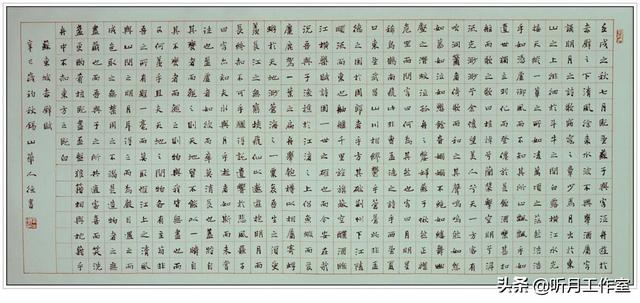 壬戌之秋七月既望蘇子與客泛舟遊於
赤壁之下清風徐來水波不興舉酒屬客
誦明月之詩歌窈窕之章少焉月出於東
山之上徘徊於斗牛之間白露橫江水光
接天縱一葦之所如凌萬頃之茫然浩浩
乎如馮虛御風而不知其所止飄飄乎如
遺世獨立羽化而登仙於是飲酒樂甚扣
舷而歌之歌曰桂棹兮蘭槳擊空明兮泝
流光渺渺兮予懷望美人兮天一方客有
吹洞簫者倚歌而和之其聲嗚嗚然如怨
如慕如泣如訴餘音嫋嫋不絕如縷舞幽
壑之潛蛟泣孤舟之嫠婦蘇子愀然正襟
危坐而問客曰何為其然也客曰月明星
稀烏鵲南飛此非曹孟德之詩乎西望夏
口東望武昌山川相繆鬱乎蒼蒼此非孟
德之困於周郎者乎方其破荊州下江陵
順流而東也舳艫千里旌旗蔽空釃酒臨
江橫槊賦詩固一世之雄也而今安在哉
況吾與子漁樵於江渚之上侶魚蝦而友
麋鹿駕一葉之扁舟舉匏樽以相屬寄蜉
蝣於天地渺滄海之一粟哀吾生之須臾
羨長江之無窮挾飛仙以遨遊抱明月而
長終知不可乎驟得託遺響於悲風蘇子
曰客亦知夫水與月乎逝者如斯而未嘗
往也盈虛者如彼而卒莫消長也蓋將自
其變者而觀之則天地曾不能以一瞬自
其不變者而觀之則物與我皆無盡也而
又何羨乎且夫天地之間物各有主苟非
吾之所有雖一毫而莫取惟江上之清風
與山間之明月耳得之而為聲目遇之而
成色取之無禁用之不竭是造物者之無
盡藏也而吾與子之所共適客喜而笑洗
盞更酌肴核既盡杯盤狼藉相與枕藉乎
舟中不知東方之既白
蘇東坡赤壁賦
辛巳歲初秋錫山華人德書
头条@听月工作室